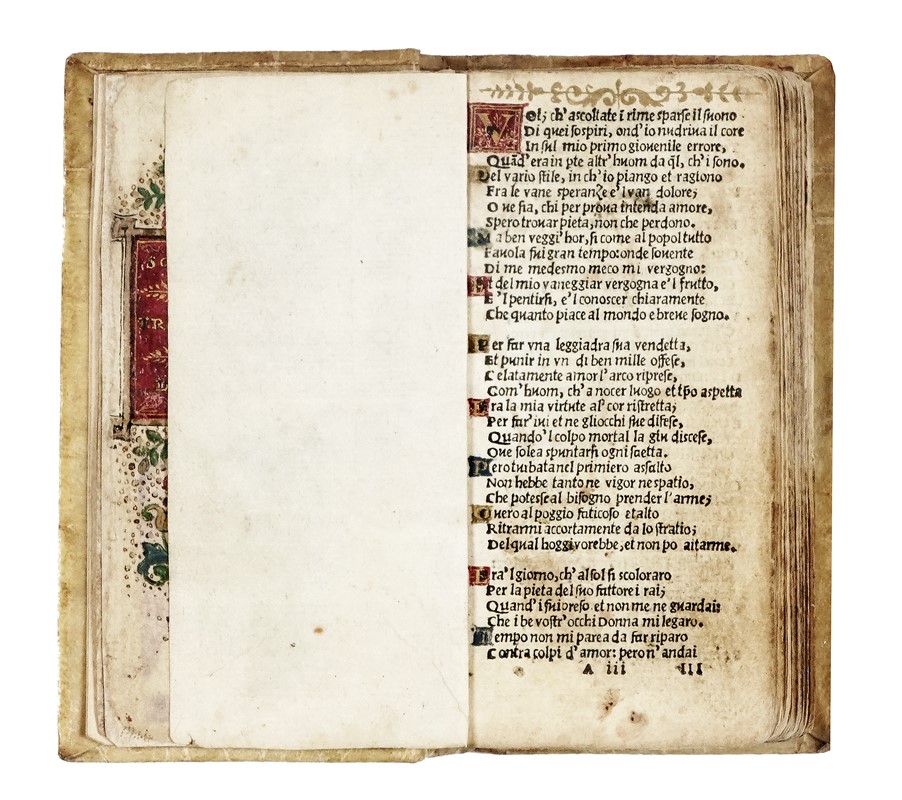 SO
TR
Voi; ch'ascoltate ĩ rime sparse il suono
Di quei sospiri, ond'io nudriua il core
In sul mio primo giouenile errore,
Quãd'era in pte altr'huom da ql, ch'i sono.
Del vario stile, in ch'io piango et ragiono
Fra le vane speranze e'l van dolore;
Oue sia, chi per proua intenda amore,
Spero trouar pieta, non che perdono.
Ma ben veggi'hor, si come al popol tutto
Fauola fui gran tempo: onde souente
Di me medesmo meco mi vergogno:
Et del mio vaneggiar vergogna e'l frutto,
E'l pentirsi, e'l conoscer chiaramente
Che quanto piace al mondo e breue sogno.
Per far vna leggiadra sua vendetta,
Et punir in vn di ben mille offese,
Celatamente amor l'arco riprese,
Com'huom, ch'a nocer luogo et tẽpo aspetta
Era la mia virtute al cor ristretta;
Per far'iui et ne gliocchi sue difese,
Quando'l colpo mortal la giu discese,
Oue solea spuntarsi ogni saetta.
Pero turbata nel primiero assalto
Non hebbe tanto ne vigor ne spatio,
Che potesse al bisogno prender l'arme;
Ouero al poggio faticoso et alto
Ritrarmi accortamente da lo stratio;
Del qual hoggi vorebbe, et non po aitarme.
Era'l giorno, ch'al sol si scoloraro
Per la pieta del suo fattore i rai;
Quand'i fui preso. et non me ne guardai:
Che i be vostr'occhi Donna mi legaro.
Tempo non mi parea da far riparo
Contra colpi d'amor: però n'andai
A iii III